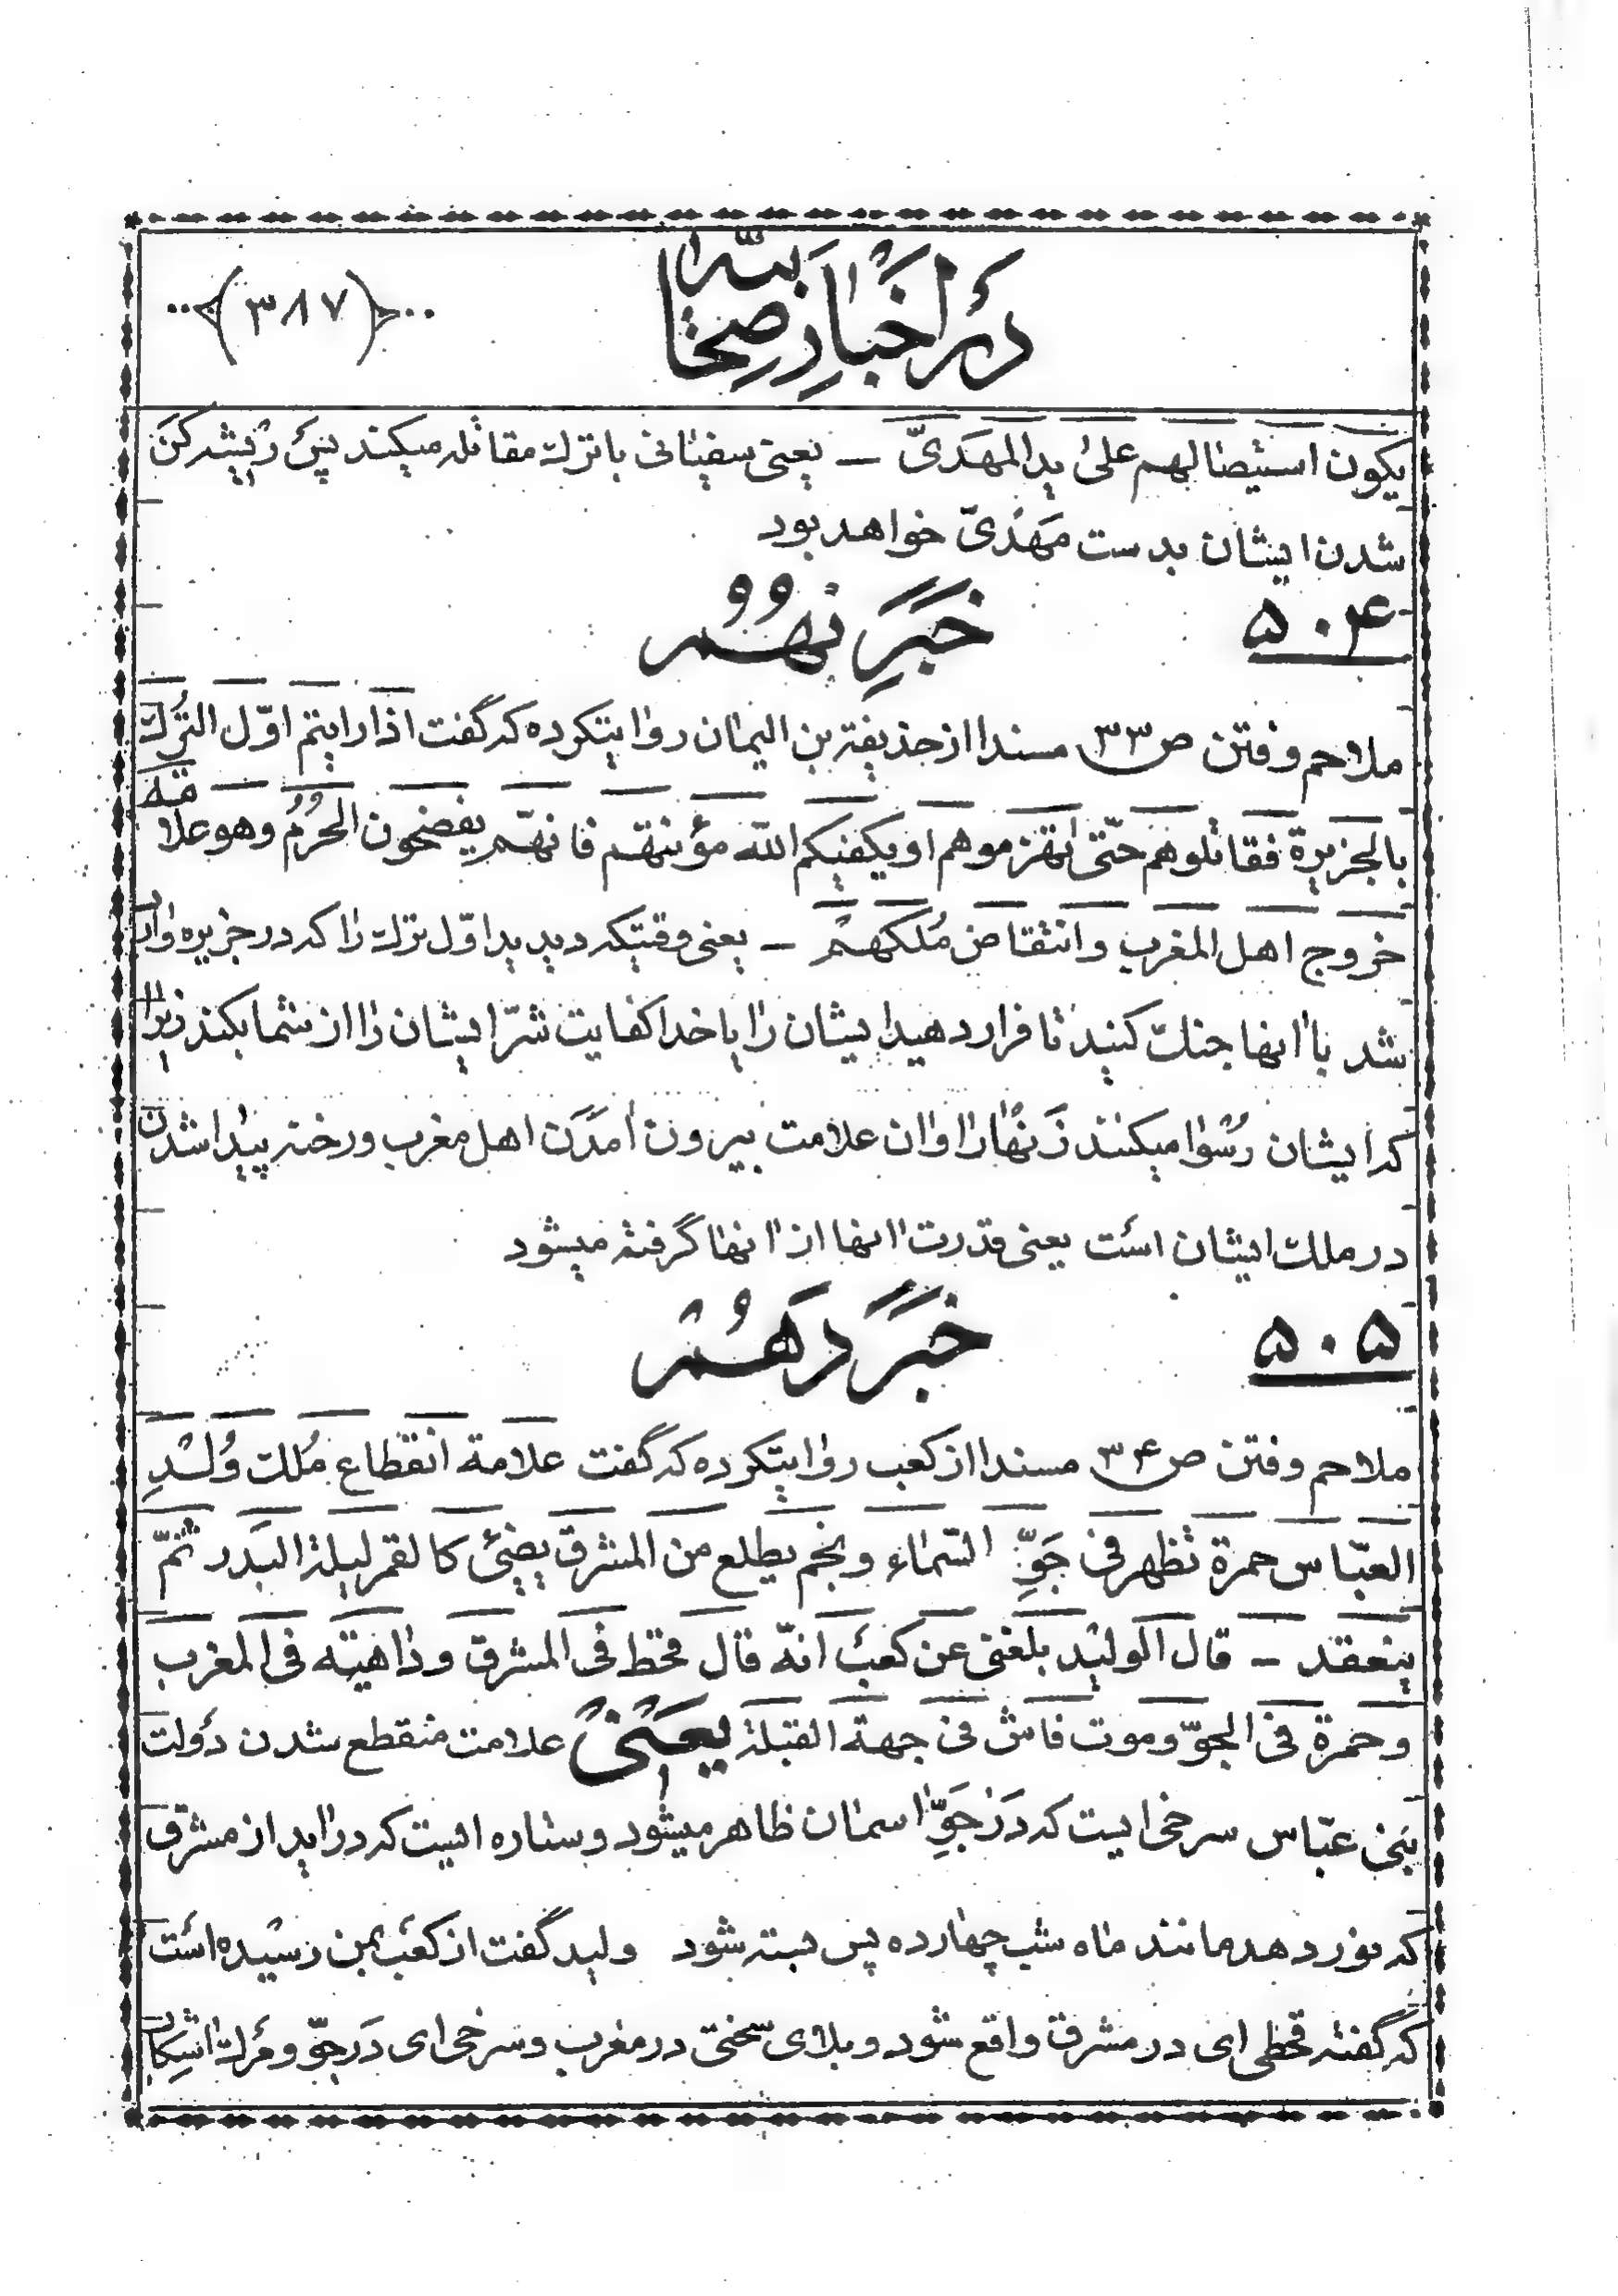 در اخبار صحابه
(۳۸۷)
یکون استیصالهم علی ید المهدیّ – یعنی سفیانی با ترک مقاتله میکند پس ریشه کن
شدن ایشان بدست مهدیّ خواهد بود
۵۰۴
خبر نهم
ملاحم و فتن ص ۳۳ مسندا از حذیفة بن الیمان روایتکرده که گفت اذا رایتم اوّل التّرک
بالجزیرة فقاتلوهم حتّی تهزموهم او یکفیکم الله مؤنتهم فانهّم یفضحون الحرم و هو علامة
خروج اهل المغرب و انتقاض ملکهم – یعنی وقتیکه دیدید اوّل ترک را که در جزیره وارد
شد با انها جنک کنید تا فرار دهید ایشان را یا خدا کفایت شرّ ایشان را از شما بکند زیرا
که ایشان رسوا میکنند زنها را و ان علامت بیرون امدن اهل مغرب و رخنه پیدا شدن
در ملک ایشان است یعنی قدرت انها از انها گرفته میشود
۵۰۵
خبر دهم
ملاحم و فتن ص ۳۴ مسندا از کعب روایتکرده که گفت علامة انقطاع ملک ولد
العبّاس حمرة تظهر فی جوّ السّماء و نجم یطلع من المشرق یضیئ کالقمر لیلة البدر ثمّ
ینعقد – قال الولید بلغنی عن کعب انّه قال قحط فی المشرق و داهیته فی المغرب
و حمرة فی الجوّ و موت فاش فی جهة القبلة یعنی علامت منقطع شدن دولت
بنی عبّاس سرخی ایست که در جوّ اسمان ظاهر میشود و ستاره ایست که دراید از مشرق
که نور دهد مانند ماه شب چهارده پس بسته شود ولید گفت از کعب بمن رسیده است
که گفته قحطی ای در مشرق واقع شود و بلای سختی در مغرب و سرخی ای در جوّ و مرک اشکار